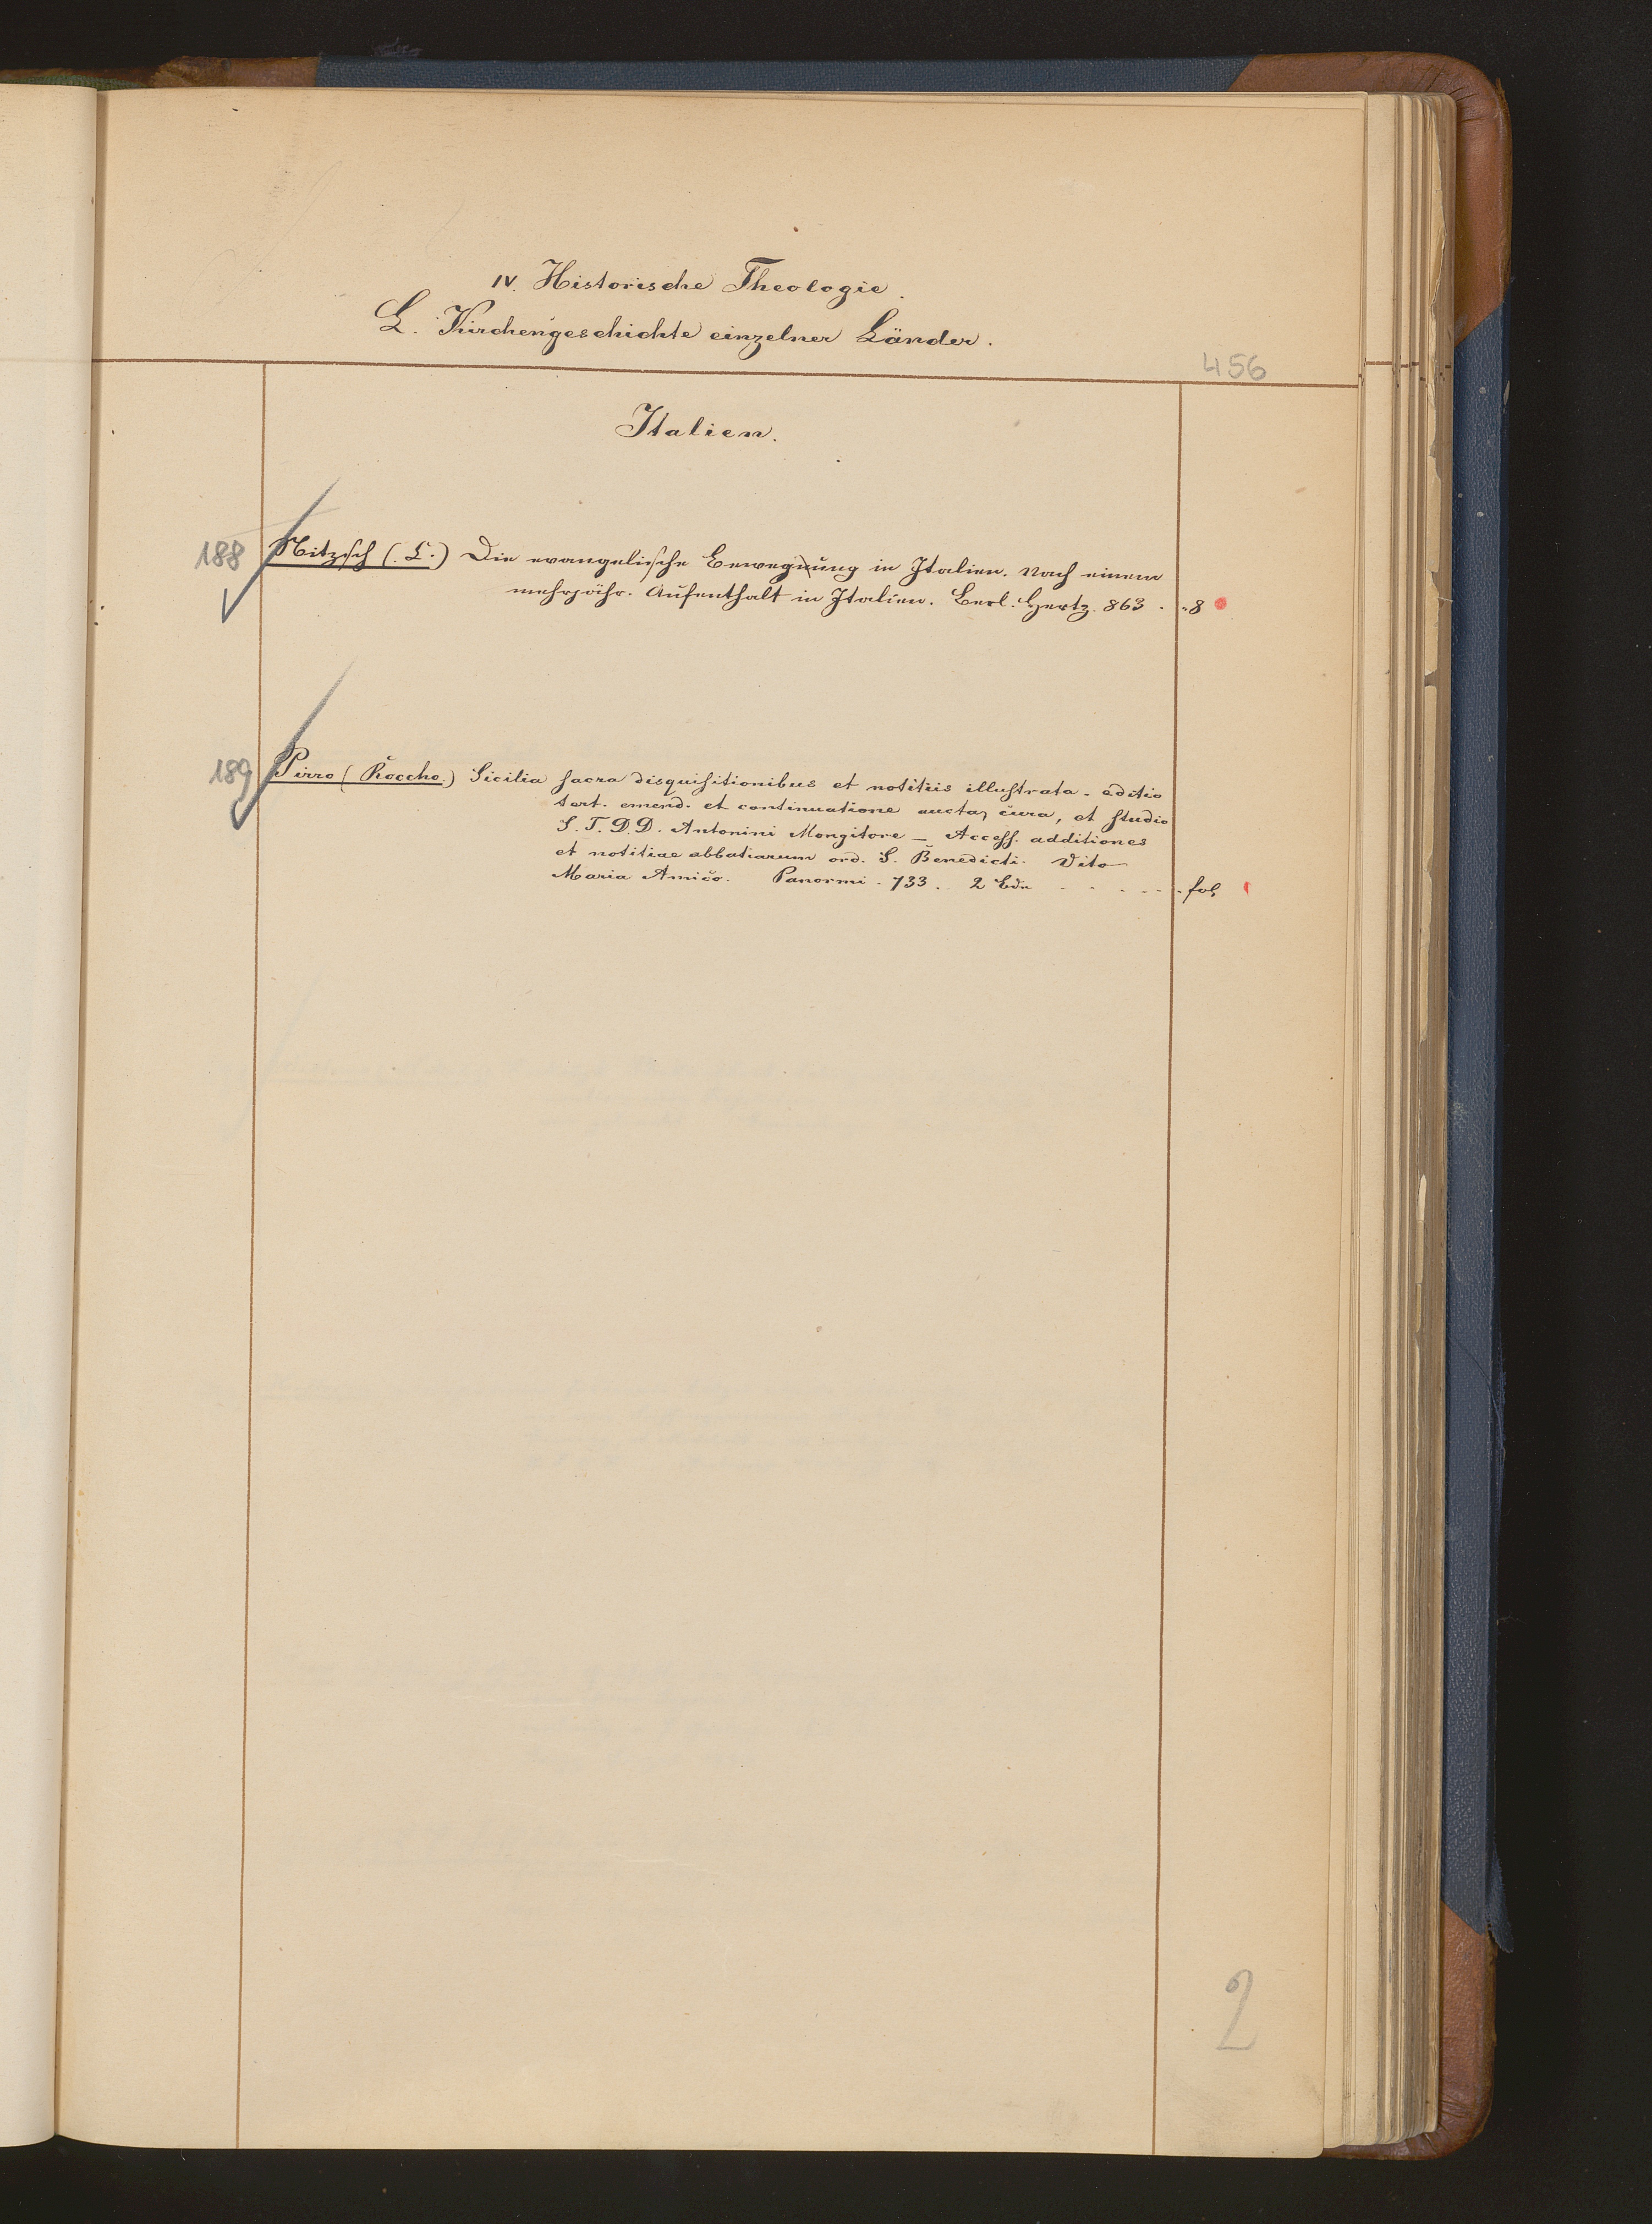 IV. Historische Theologie.
L. Kirchengeschichte einzelner Länder.
456
Italien.
188 Nitzsch (L.) Die evangelische Bewegung in Italien. Nach einem
mehrjähr. Aufenthalt in Italien. Berl. Hertz. 863 . . 8
189 Pirro (Roccho.) Sicilia sacra disquisitionibus et notitiis illustrata. editio
tert. emend. et continuatione aucta, cura, et studio
S. T. D. D. Antonini Mongitore — Access. additiones
et notitiae abbatiarum ord. S. Benedicti. Vito
Maria Amico. Panormi. 733. 2 Bde - - - - - - fol.
2